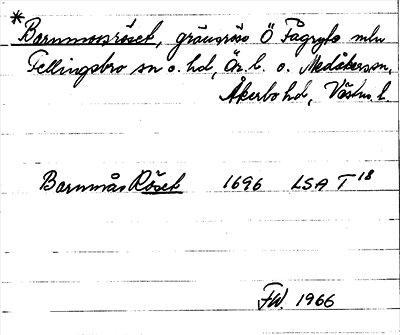 *Barnmorsröset, gränsröse Ö Fågryta mln
Fellingsbro sn o. hd, Ör. l. o. Medåkers sn,
Åkerbo hd, Västm. l.
Barnmårs Röset 1696 LSA T 18
FW. 1966